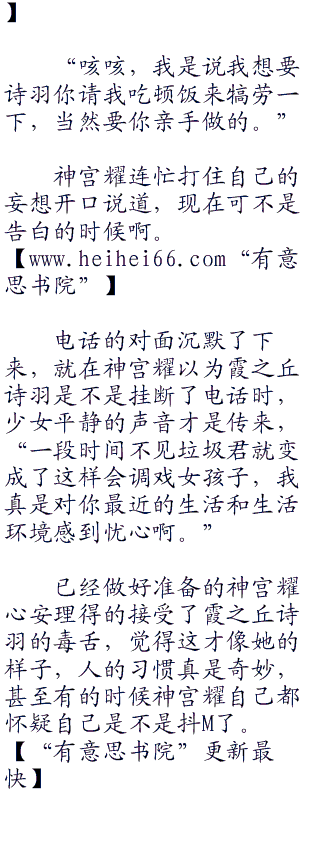 】
“咳咳，我是说我想要
诗羽你请我吃顿饭来犒劳一
下，当然要你亲手做的。”
神宫耀连忙打住自己的
妄想开口说道，现在可不是
告白的时候啊。
【www.heihei66.com“有意
思书院”】
电话的对面沉默了下
来，就在神宫耀以为霞之丘
诗羽是不是挂断了电话时，
少女平静的声音才是传来，
“一段时间不见垃圾君就变
成了这样会调戏女孩子，我
真是对你最近的生活和生活
环境感到忧心啊。”
已经做好准备的神宫耀
心安理得的接受了霞之丘诗
羽的毒舌，觉得这才像她的
样子，人的习惯真是奇妙，
甚至有的时候神宫耀自己都
怀疑自己是不是抖M了。
【“有意思书院”更新最
快】